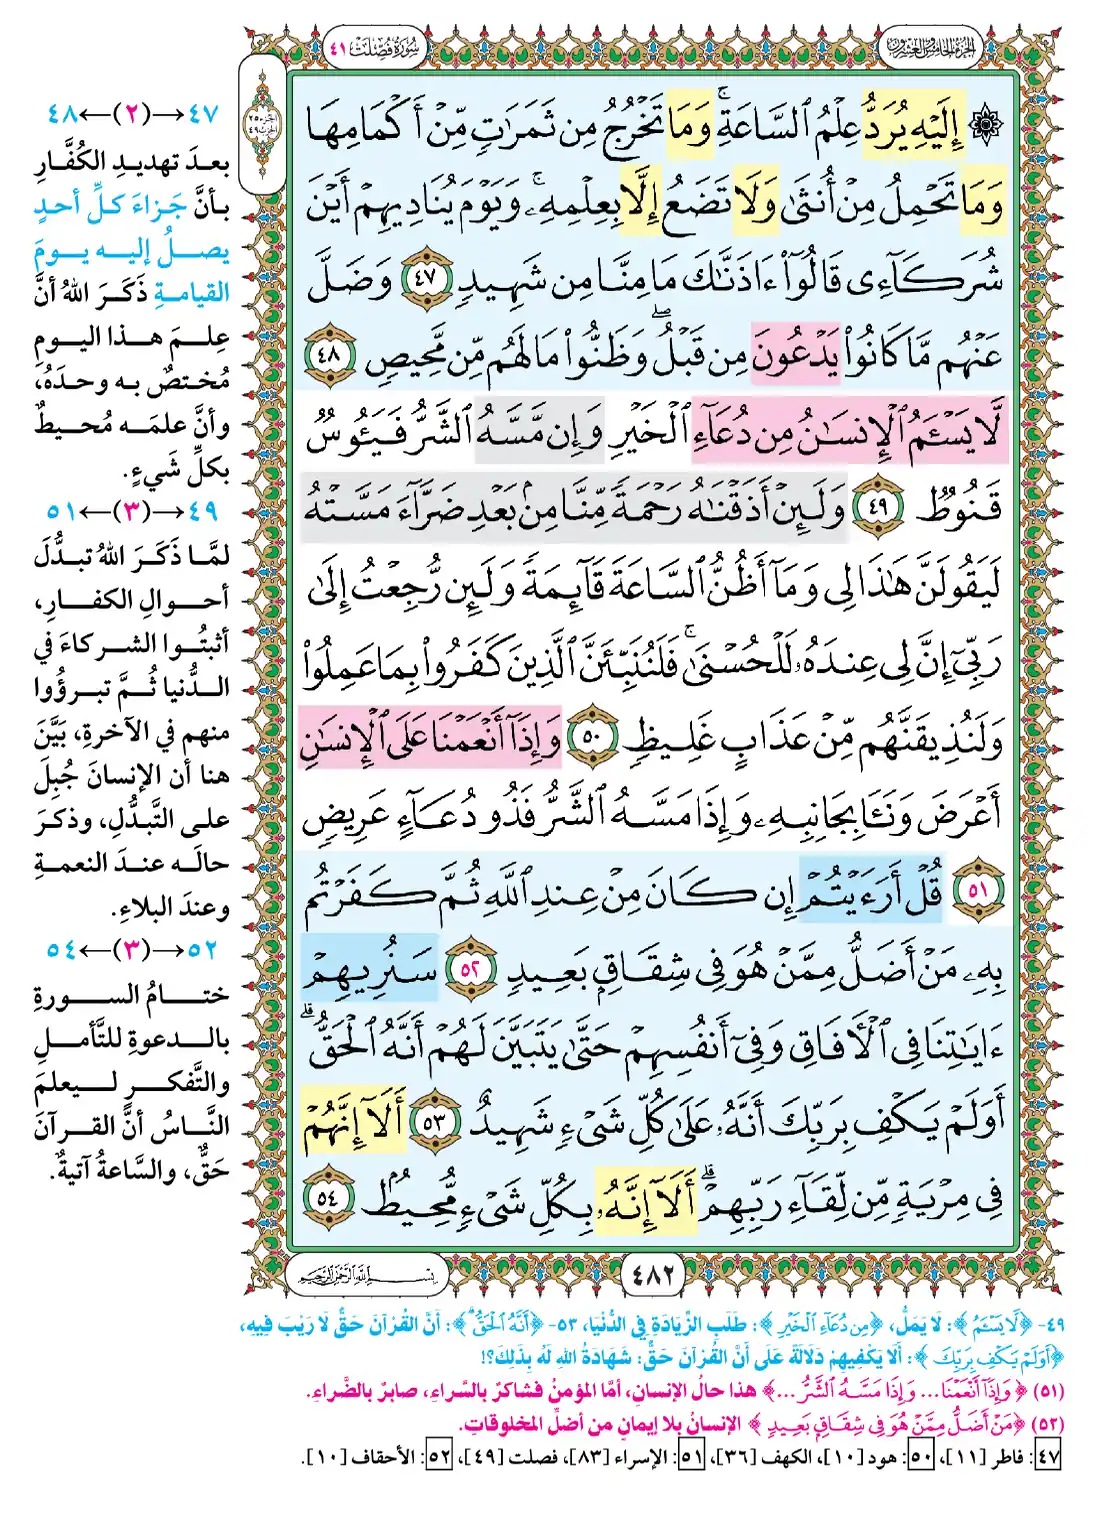 الجزء الخامس والعشرون
سورة فصلت ٤١
الجزء ٢٥
الحزب ٤٩
۞ إِلَيْهِ يُرَدُّ عِلْمُ ٱلسَّاعَةِ ۚ وَمَا تَخْرُجُ مِن ثَمَرَٰتٍ مِّنْ أَكْمَامِهَا
وَمَا تَحْمِلُ مِنْ أُنثَىٰ وَلَا تَضَعُ إِلَّا بِعِلْمِهِۦ ۚ وَيَوْمَ يُنَادِيهِمْ أَيْنَ
شُرَكَآءِى قَالُوٓا۟ ءَاذَنَّـٰكَ مَا مِنَّا مِن شَهِيدٍ ٤٧ وَضَلَّ
عَنْهُم مَّا كَانُوا۟ يَدْعُونَ مِن قَبْلُ ۖ وَظَنُّوا۟ مَا لَهُم مِّن مَّحِيصٍ ٤٨
لَّا يَسْـَٔمُ ٱلْإِنسَـٰنُ مِن دُعَآءِ ٱلْخَيْرِ وَإِن مَّسَّهُ ٱلشَّرُّ فَيَـُٔوسٌ
قَنُوطٌ ٤٩ وَلَئِنْ أَذَقْنَـٰهُ رَحْمَةً مِّنَّا مِنۢ بَعْدِ ضَرَّآءَ مَسَّتْهُ
لَيَقُولَنَّ هَـٰذَا لِى وَمَآ أَظُنُّ ٱلسَّاعَةَ قَآئِمَةً وَلَئِن رُّجِعْتُ إِلَىٰ
رَبِّىٓ إِنَّ لِى عِندَهُۥ لَلْحُسْنَىٰ ۚ فَلَنُنَبِّئَنَّ ٱلَّذِينَ كَفَرُوا۟ بِمَا عَمِلُوا۟
وَلَنُذِيقَنَّهُم مِّنْ عَذَابٍ غَلِيظٍ ٥٠ وَإِذَآ أَنْعَمْنَا عَلَى ٱلْإِنسَـٰنِ
أَعْرَضَ وَنَـَٔا بِجَانِبِهِۦ وَإِذَا مَسَّهُ ٱلشَّرُّ فَذُو دُعَآءٍ عَرِيضٍ
٥١ قُلْ أَرَءَيْتُمْ إِن كَانَ مِنْ عِندِ ٱللَّهِ ثُمَّ كَفَرْتُم
بِهِۦ مَنْ أَضَلُّ مِمَّنْ هُوَ فِى شِقَاقٍۭ بَعِيدٍ ٥٢ سَنُرِيهِمْ
ءَايَـٰتِنَا فِى ٱلْـَٔافَاقِ وَفِىٓ أَنفُسِهِمْ حَتَّىٰ يَتَبَيَّنَ لَهُمْ أَنَّهُ ٱلْحَقُّ ۗ
أَوَلَمْ يَكْفِ بِرَبِّكَ أَنَّهُۥ عَلَىٰ كُلِّ شَىْءٍ شَهِيدٌ ٥٣ أَلَآ إِنَّهُمْ
فِى مِرْيَةٍ مِّن لِّقَآءِ رَبِّهِمْ ۗ أَلَآ إِنَّهُۥ بِكُلِّ شَىْءٍ مُّحِيطٌۢ ٥٤
٤٧→(٢)←٤٨
بعدَ تهديدِ الكُفَّارِ
بأنَّ جَزاءَ كلِّ أحدٍ
يصلُ إليه يومَ
القيامةِ ذَكَرَ اللهُ أنَّ
عِلمَ هذا اليومِ
مُختصٌ به وحدَهُ،
وأنَّ علمَه مُحيطٌ
بكلِّ شَيءٍ.
٤٩→(٣)←٥١
لمَّا ذَكَرَ اللهُ تبدُّلَ
أحوالِ الكفارِ،
أثبتُوا الشركاءَ في
الدُّنيا ثُمَّ تبرؤُوا
منهم في الآخرةِ، بَيَّنَ
هنا أن الإنسانَ جُبِلَ
على التَّبدُّلِ، وذكرَ
حالَه عندَ النعمةِ
وعندَ البلاءِ.
٥٢→(٣)←٥٤
ختامُ السورةِ
بالدعوةِ للتَّأملِ
والتَّفكرِ ليعلمَ
النَّاسُ أنَّ القرآنَ
حَقٌّ، والسَّاعةُ آتيةٌ.
٤٨٢
بسم الله الرحمن الرحيم
٤٩- ﴿لَّا يَسْـَٔمُ﴾: لا يَمَلُّ، ﴿مِن دُعَآءِ ٱلْخَيْرِ﴾: طَلَبِ الزِّيَادَةِ فِي الدُّنْيَا، ٥٣- ﴿أَنَّهُ ٱلْحَقُّ ۗ﴾: أَنَّ القُرْآنَ حَقٌّ لَا رَيْبَ فِيهِ،
﴿أَوَلَمْ يَكْفِ بِرَبِّكَ﴾: أَلَا يَكْفِيهِمْ دَلَالَةً عَلَى أَنَّ القُرْآنَ حَقٌّ: شَهَادَةُ اللهِ لَهُ بِذَلِكَ؟!
(٥١) ﴿وَإِذَآ أَنْعَمْنَا... وَإِذَا مَسَّهُ ٱلشَّرُّ ...﴾ هذا حالُ الإنسانِ، أمَّا المؤمنُ فشاكرٌ بالسَّراءِ، صابرٌ بالضَّراءِ.
(٥٢) ﴿مَنْ أَضَلُّ مِمَّنْ هُوَ فِى شِقَاقٍۭ بَعِيدٍ﴾ الإنسانُ بلا إيمانٍ من أضلِّ المخلوقاتِ.
٤٧: فاطر [١١]، ٥٠: هود [١٠]، الكهف [٣٦]، ٥١: الإسراء [٨٣]، فصلت [٤٩]، ٥٢: الأحقاف [١٠].